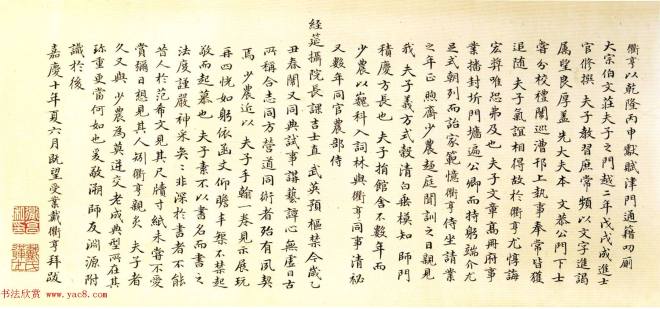 衢亨以乾隆丙申獻賦津門通籍叨厠
大宗伯文莊夫子之門越二年戊戌成進士
官修撰 夫子教習庶常頻以文字進謁
屬望良厚蓋 先大夫本 文恭公門下士
嘗分校禮闈巡漕邗上執事奉常皆獲
追随 夫子氣誼相得故於衢亨尤惇誨
宏奬唯恐弗及也 夫子文章髙冊府事
業播封圻門墉遍公卿而持躬端介尤
足式朝列而詒家範憶衢亨侍坐請業
之年正煦齋少農趨庭聞訓之日親見
我 夫子義方式榖清白垂模知 師門
積慶方長也 夫子捐館舍不數年而
少農以巍科入詞林與衢亨同事清祕
又數年同官農部侍
經筵攝院長課吉士直 武英預樞禁今歲乙
丑春闈又同典試事講藝譚心無虛日古
所稱合志同方營道同術者殆有夙契
焉 少農近以 夫子手翰一卷見示展玩
再四恍如躬依函丈仰瞻丰架不禁起
敬而起慕也 夫子素不以書名而書之
法度謹嚴神采奕奕非深於書者不能
昔人於范希文見其尺牘寸紙未嘗不愛
賞彌日想見其人矧衢亨親炙 夫子者
久又與少農為莫逆交老成典型所在其
珍重更當何如也爰敬溯 師友淵源附
識於後
嘉慶十年夏六月既望受業戴衢亨拜跋
书法欣赏
www.yac8.com